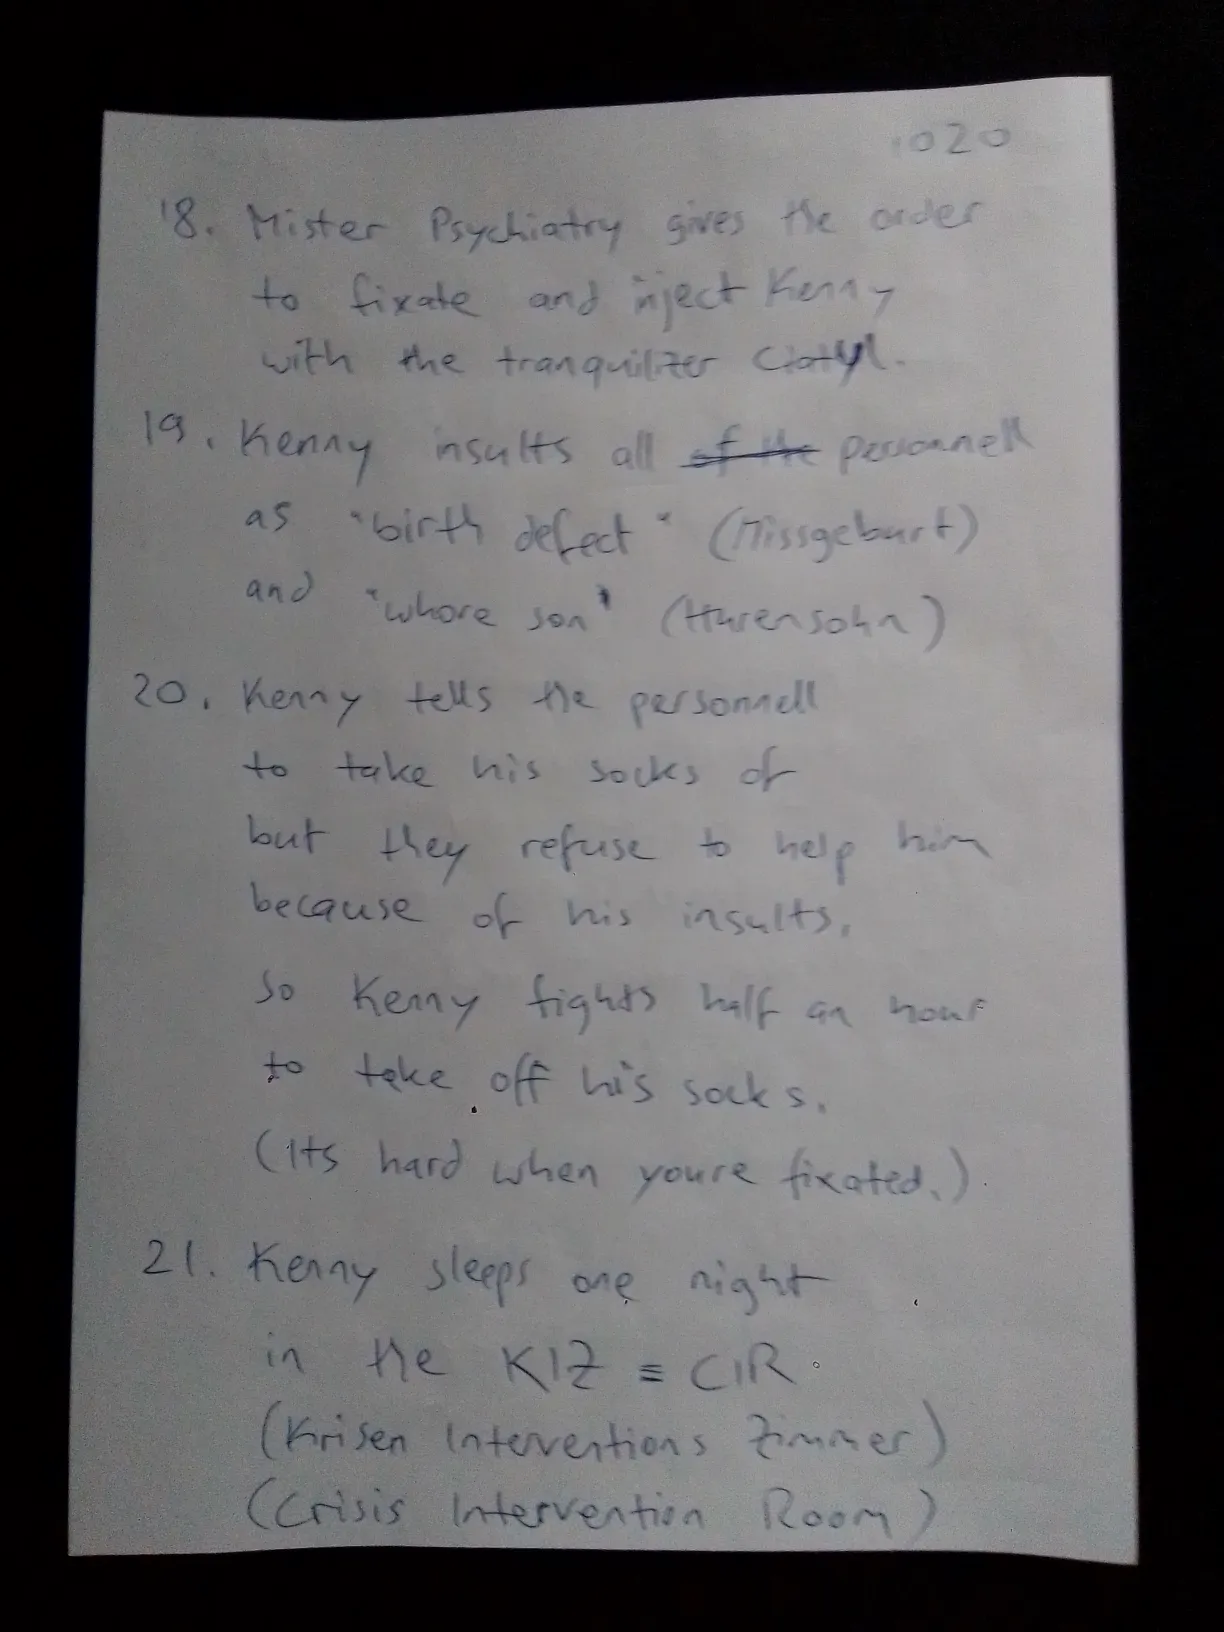 1020
18. Mister Psychiatry gives the order
to fixate and inject Kenny
with the tranquilizer
19. Kenny insults all of the personnell
as "birth defect" (Missgeburt)
and "whore son" (Hurensohn)
20. Kenny tells the personnell
to take his socks of
but they refuse to help him
because of his insults,
so Kenny fights half an hour
to take off his socks.
(Its hard when youre fixated.)
21. Kenny sleeps one night
in the KIZ ≡ CIR.
(Krisen Interventions Zimmer)
(Crisis Intervention Room)